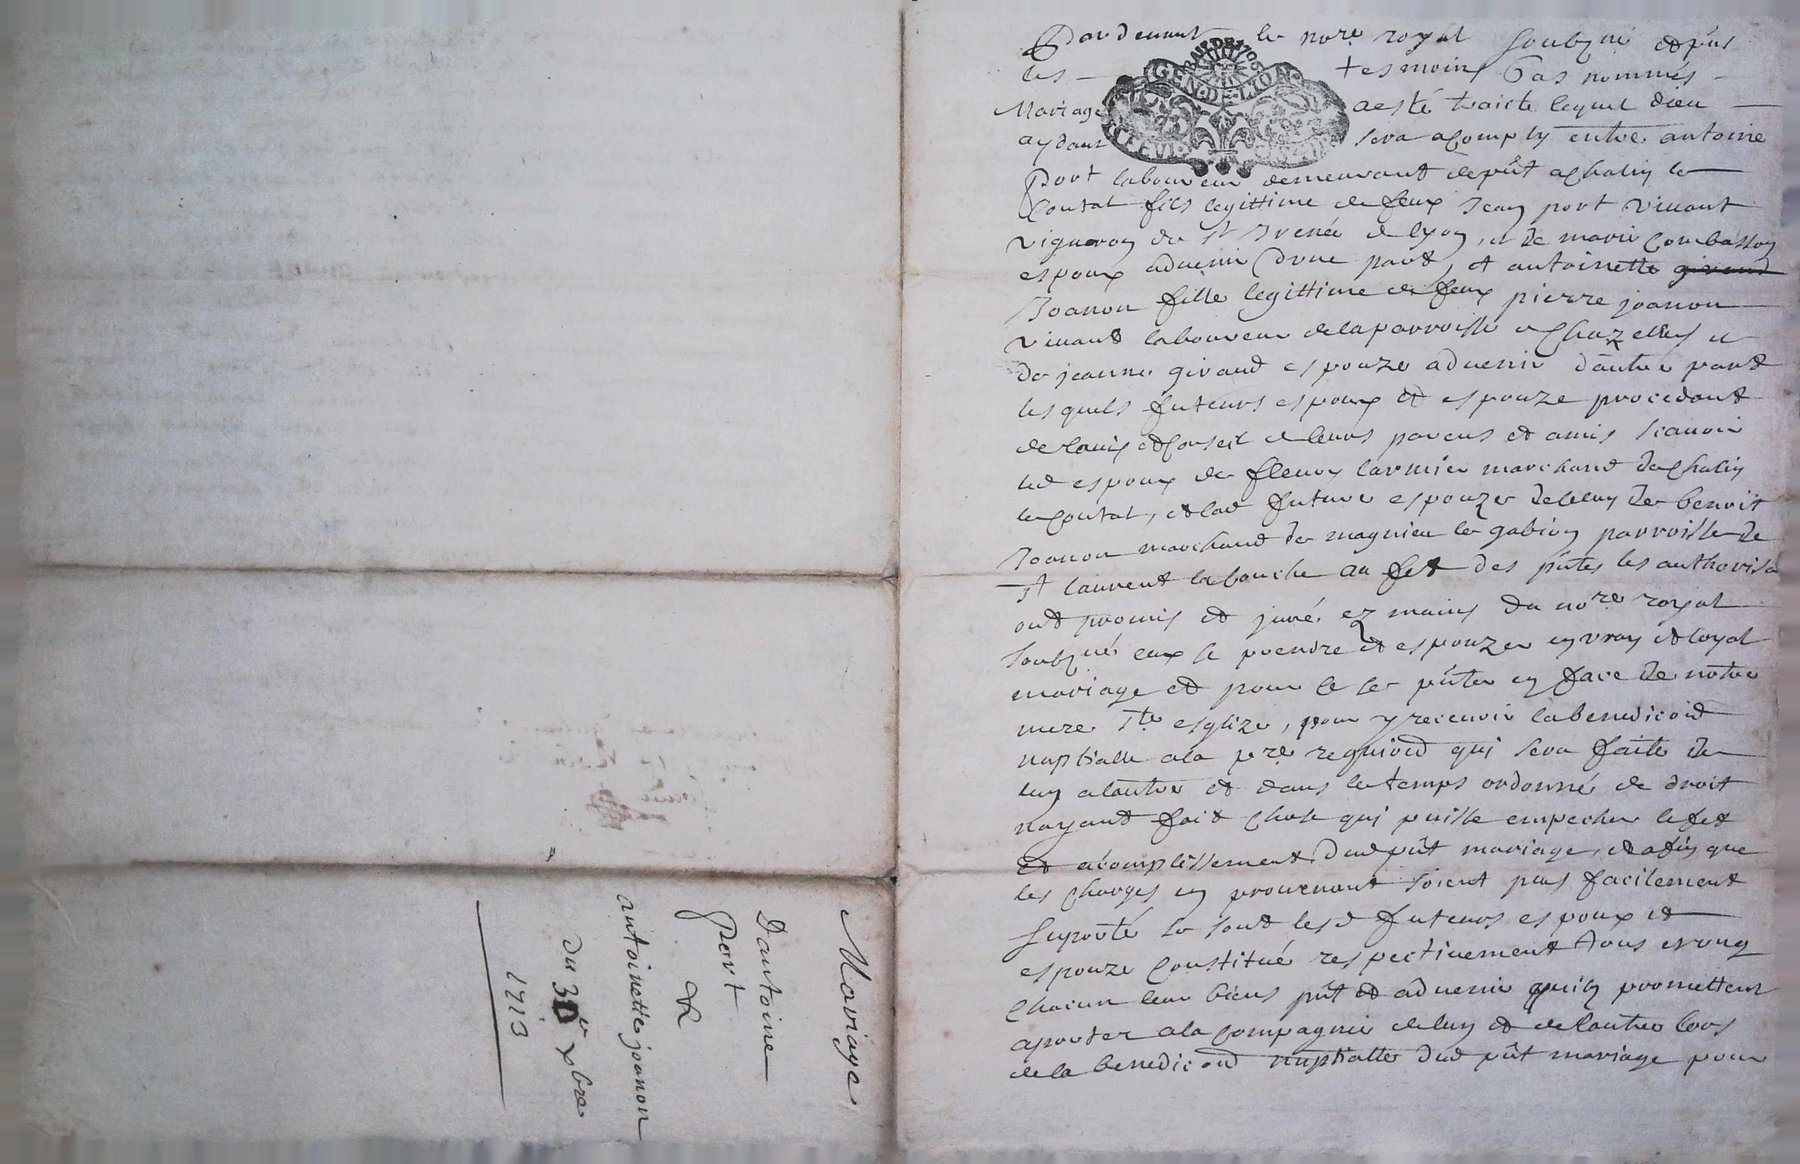 Pardevant le no.re royal soubz.né et p̃ns
les tesmoins bas nommés
Mariage a esté traicté lequel dieu
aydant sera acomply entre antoine
Port laboureur demeurant de p̃nt a Chalin le
Contal fils legittime de feux Jean port vivant
vigneron de St Irenée de lyon, et de marie Combasson
espoux advenir d'une part, et antoinette giraud
Joanon fille legittime de feux pierre joanon
vivant laboureur de la parroisse de Chazelles et
de jeanne giraud espouze advenir d'autre part
lesquels futeurs espoux et espouze procedant
de lavis et Conseil de leurs parens et amis scavoir
led espoux de fleury larmier marchand de Chalin
le Contal, et lad future espouze de celuy de benoit
Joanon marchand de magnieu le gabion parroisse de
St laurent la bouche au fet des p̃ntes les authorisé
ont promis et juré ez mains du no.re royal
soubz.né eux se prendre et espouzer en vray et loyal
mariage et pour ce se p̃nter en face de notre
mere Ste esglize, pour y recevoir la benedicõn
nuptialle a la p.re requisiõn qui sera faite de
lun a lautre et dans le temps ordonné de droit
nayant fait Chose qui puisse empecher le fet
et acomplissement dud p̃nt mariage, et afin que
les Charges en provenant soient plus facilement
suporté se sont lesd futeurs espoux et
espouze Constitué respectivement tous et un
Chacun leur biens p̃nt et advenir quils promettent
aporter a la Compagnie de lun et de lautre lors
de la benedicõn nuptialle dud p̃nt mariage pour
GEN·DE·LION
Mariage
Dantoine
Port
&
antoinette joanon
du 30 xbre
1713